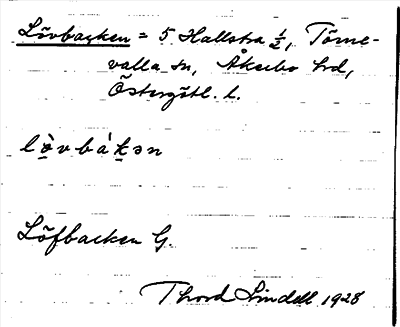 Lövbacken = 5 Hallsta 1/2, Törne-
valla sn, Åkerbo hrd,
Östergötl. l.
lö̀vbàkən
Löfbacken G.
Thord Lindell 1928